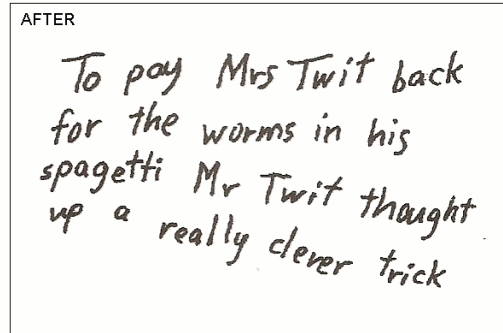 AFTER
To pay Mrs Twit back
for the worms in his
spagetti Mr Twit thought
up a really clever trick